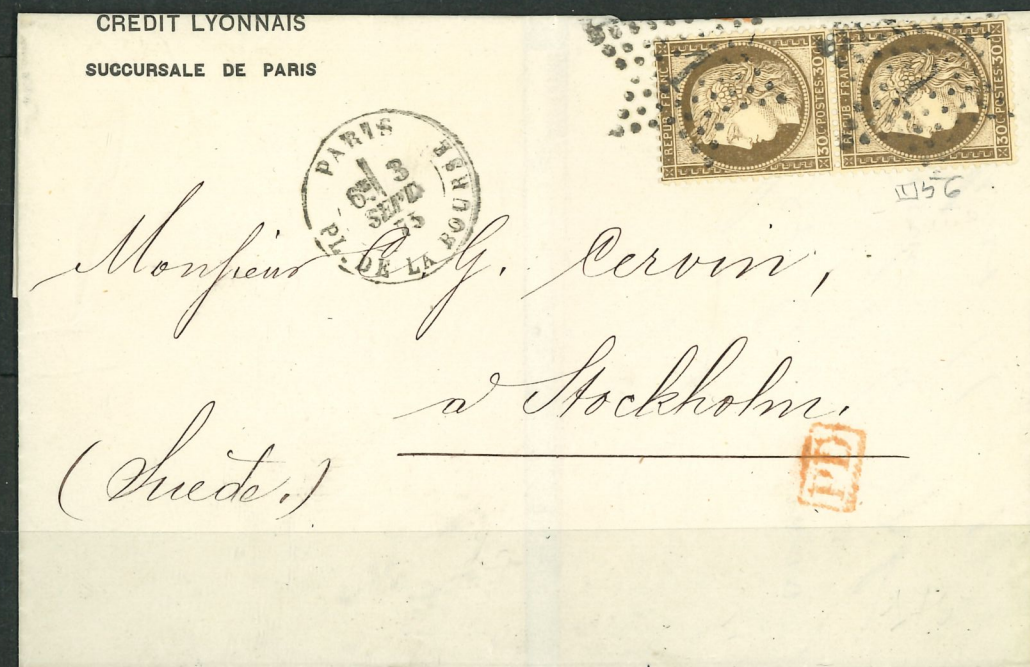 CREDIT LYONNAIS
SUCCURSALE DE PARIS
REPUB. FRANC.
30 C. POSTES. 30
REPUB. FRANC.
30 C. POSTES. 30
1
PARIS
6E
SEPT
75
PL. DE LA BOURSE
Monsieur C. G. Cervin,
à Stockholm.
(Suède.)
PD
56